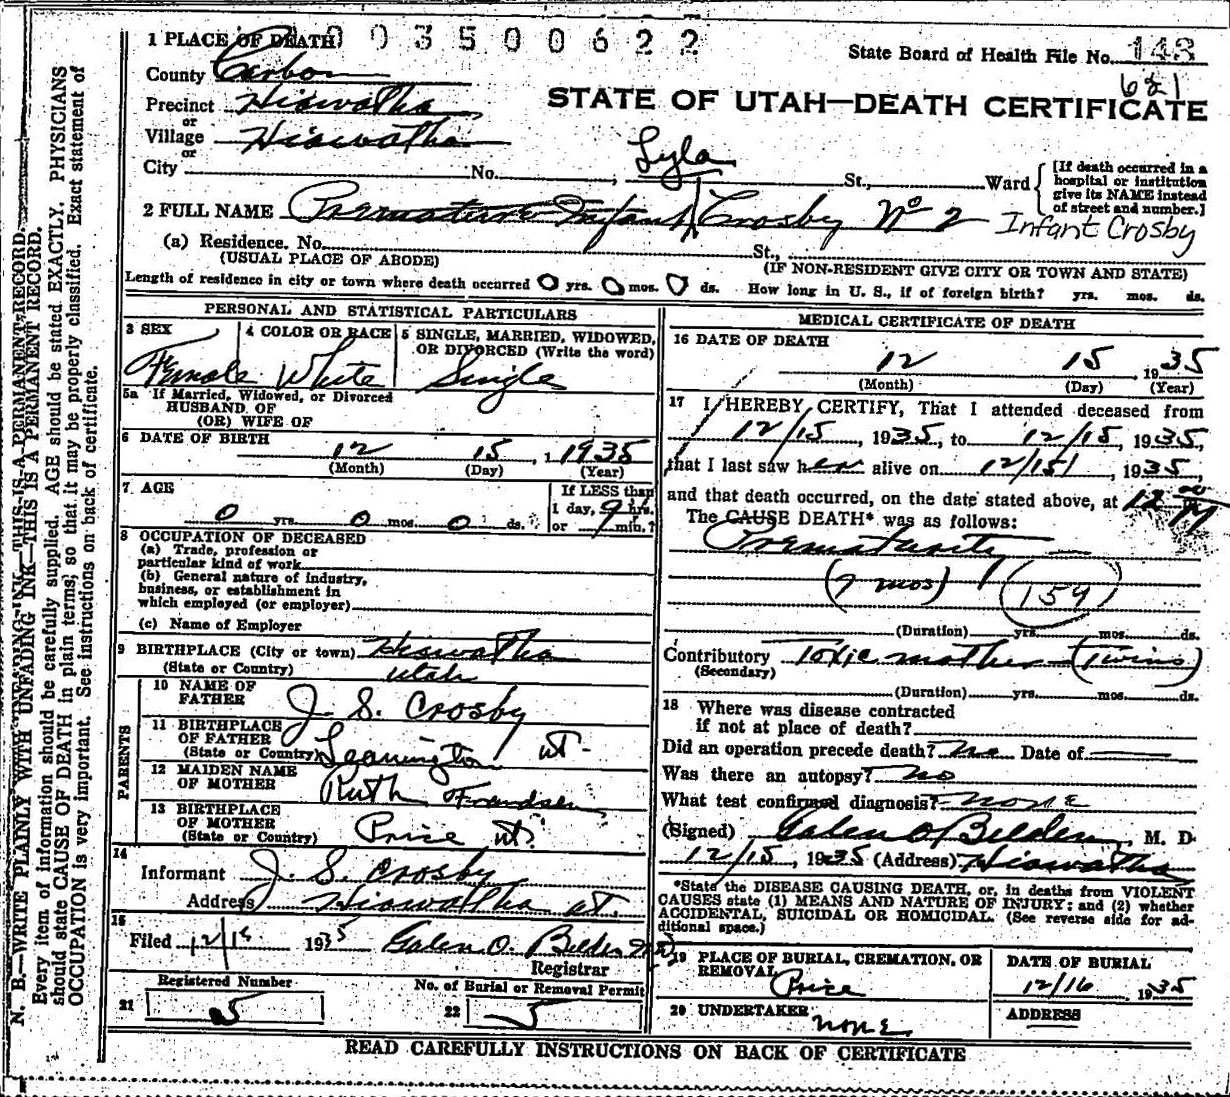 0 0 3 5 0 0 6 2 2
1 PLACE OF DEATH
State Board of Health File No. 143
621
County Carbon
STATE OF UTAH—DEATH CERTIFICATE
Precinct Hiawatha
or
Village Hiawatha
or
City No. , St., Ward
[If death occurred in a hospital or institution give its NAME instead of street and number.]
Lyla
2 FULL NAME Premature Infant Crosby No 2
Infant Crosby
(a) Residence. No. St.,
(USUAL PLACE OF ABODE) (IF NON-RESIDENT GIVE CITY OR TOWN AND STATE)
Length of residence in city or town where death occurred 0 yrs. 0 mos. 0 ds. How long in U. S., if of foreign birth? yrs. mos. ds.
PERSONAL AND STATISTICAL PARTICULARS
3 SEX 4 COLOR OR RACE 5 SINGLE, MARRIED, WIDOWED, OR DIVORCED (Write the word)
Female White Single
5a If Married, Widowed, or Divorced
HUSBAND OF
(OR) WIFE OF
6 DATE OF BIRTH
12 15 , 1 1935
(Month) (Day) (Year)
7 AGE If LESS than
1 day, 9 hrs.
0 yrs. 0 mos. 0 ds. or min.?
8 OCCUPATION OF DECEASED
(a) Trade, profession or
particular kind of work
(b) General nature of industry,
business, or establishment in
which employed (or employer)
(c) Name of Employer
9 BIRTHPLACE (City or town) Hiawatha
(State or Country) Utah
PARENTS
10 NAME OF
FATHER J. S. Crosby
11 BIRTHPLACE
OF FATHER
(State or Country) Leamington ut-
12 MAIDEN NAME
OF MOTHER Ruth Frandsen
13 BIRTHPLACE
OF MOTHER
(State or Country) Price ut.
14
Informant J. S. Crosby
Address Hiawatha ut.
15
Filed 12/15 1935 Galen O. Belden M.D.
Registrar
Registered Number No. of Burial or Removal Permit
21 5 22 5
MEDICAL CERTIFICATE OF DEATH
16 DATE OF DEATH
12 15 , 1935
(Month) (Day) (Year)
17 I HEREBY CERTIFY, That I attended deceased from
12/15 , 1935, to 12/15, 1935,
that I last saw her alive on 12/15/ , 1935,
and that death occurred, on the date stated above, at 12 00
The CAUSE DEATH* was as follows:
Prematurity
(7 mos) 159
(Duration) yrs. mos. ds.
Contributory Toxic mother (Twins)
(Secondary)
(Duration) yrs. mos. ds.
18 Where was disease contracted
if not at place of death?
Did an operation precede death? no Date of
Was there an autopsy? no
What test confirmed diagnosis? none
(Signed) Galen O Belden, M. D.
12/15 , 1935 (Address) Hiawatha
*State the DISEASE CAUSING DEATH, or, in deaths from VIOLENT
CAUSES state (1) MEANS AND NATURE OF INJURY; and (2) whether
ACCIDENTAL, SUICIDAL OR HOMICIDAL. (See reverse side for ad-
ditional space.)
19 PLACE OF BURIAL, CREMATION, OR
REMOVAL Price
DATE OF BURIAL
12/16 , 1935
20 UNDERTAKER none
ADDRESS
READ CAREFULLY INSTRUCTIONS ON BACK OF CERTIFICATE
N. B.—WRITE PLAINLY WITH UNFADING INK—THIS IS A PERMANENT RECORD.
Every item of information should be carefully supplied. AGE should be stated EXACTLY. PHYSICIANS
should state CAUSE OF DEATH in plain terms, so that it may be properly classified. Exact statement of
OCCUPATION is very important. See instructions on back of certificate.